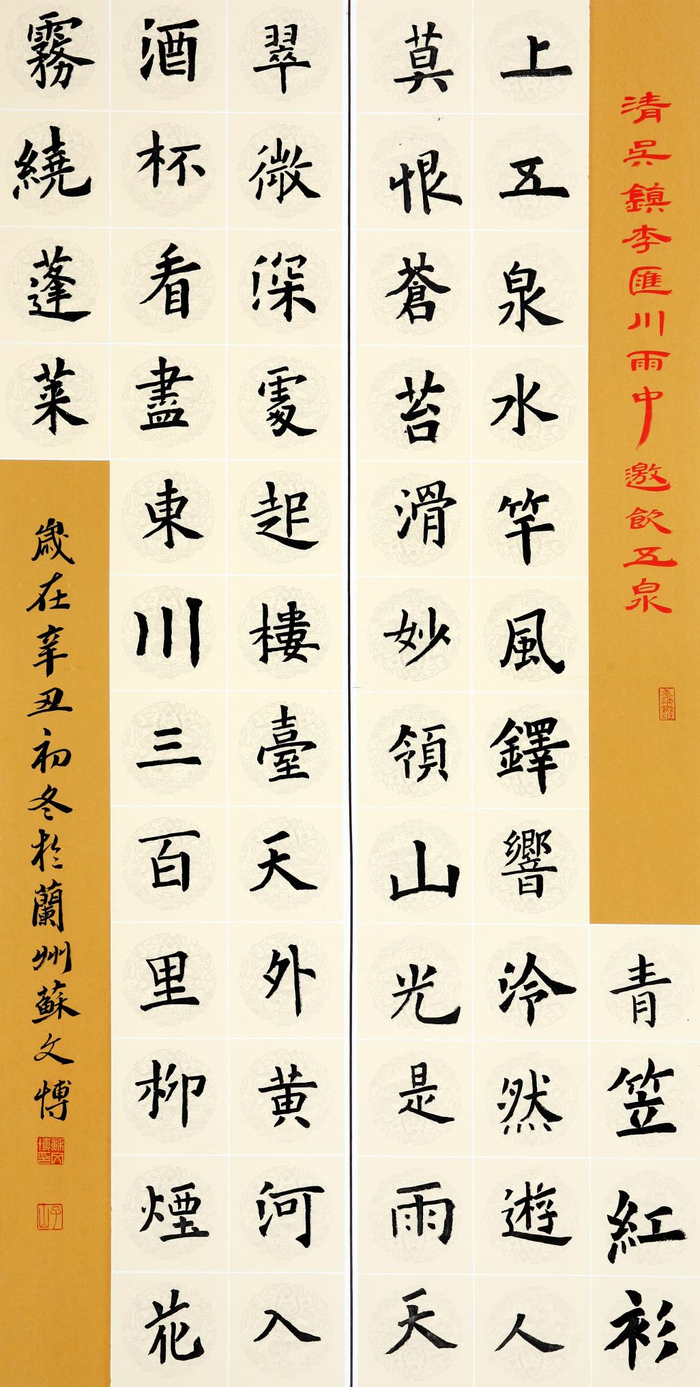 清吳鎮李匯川雨中邀飲五泉
青笠紅衫
上五泉水竿風鐸響泠然遊人
莫恨蒼苔滑妙領山光是雨天
翠微深處起樓臺天外黃河入
酒杯看盡東川三百里柳煙花
霧繞蓬萊
歲在辛丑初冬於蘭州蘇文博